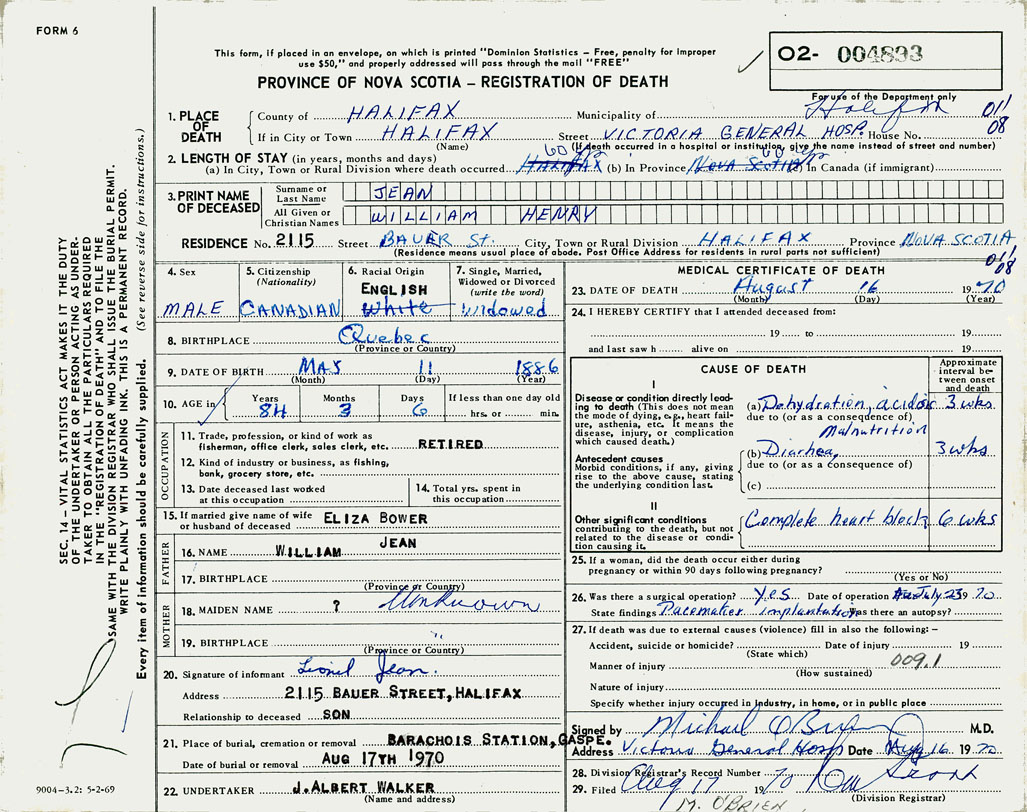 FORM 6
This form, if placed in an envelope, on which is printed "Dominion Statistics – Free, penalty for improper
use $50," and properly addressed will pass through the mail "FREE"
PROVINCE OF NOVA SCOTIA – REGISTRATION OF DEATH
02- 004893
For use of the Department only
1. PLACE OF DEATH
County of HALIFAX Municipality of Halifax 011
If in City or Town HALIFAX Street VICTORIA GENERAL HOSP. House No. 08
(Name) (If death occurred in a hospital or institution, give the name instead of street and number)
2. LENGTH OF STAY (in years, months and days)
(a) In City, Town or Rural Division where death occurred HALIFAX 60 (b) In Province NOVA SCOTIA 60 (c) In Canada (if immigrant)
3. PRINT NAME OF DECEASED
Surname or Last Name JEAN
All Given or Christian Names WILLIAM HENRY
RESIDENCE No. 2115 Street BAUER St. City, Town or Rural Division HALIFAX Province NOVA SCOTIA
(Residence means usual place of abode. Post Office Address for residents in rural parts not sufficient) 011
08
4. Sex
MALE
5. Citizenship
(Nationality)
CANADIAN
6. Racial Origin
ENGLISH
White
7. Single, Married,
Widowed or Divorced
(write the word)
Widowed
8. BIRTHPLACE Quebec
(Province or Country)
9. DATE OF BIRTH MAY 11 1886
(Month) (Day) (Year)
10. AGE in Years Months Days If less than one day old
84 3 6 hrs. or min.
OCCUPATION
11. Trade, profession, or kind of work as
fisherman, office clerk, sales clerk, etc. RETIRED
12. Kind of industry or business, as fishing,
bank, grocery store, etc.
13. Date deceased last worked
at this occupation
14. Total yrs. spent in
this occupation
15. If married give name of wife
or husband of deceased ELIZA BOWER
FATHER
16. NAME WILLIAM JEAN
17. BIRTHPLACE
(Province or Country)
MOTHER
18. MAIDEN NAME ? Unknown
19. BIRTHPLACE "
(Province or Country)
20. Signature of informant Lionel Jean.
Address 2115 BAUER STREET, HALIFAX
Relationship to deceased SON
21. Place of burial, cremation or removal BARACHOIS STATION, GASPE.
Date of burial or removal AUG 17TH 1970
22. UNDERTAKER J. ALBERT WALKER
(Name and address)
MEDICAL CERTIFICATE OF DEATH
23. DATE OF DEATH August 16 1970
(Month) (Day) (Year)
24. I HEREBY CERTIFY that I attended deceased from:
19 to 19
and last saw h alive on 19
CAUSE OF DEATH
Approximate interval between onset and death
I
Disease or condition directly leading to death (This does not mean the mode of dying, e.g., heart failure, asthenia, etc. It means the disease, injury, or complication which caused death.)
(a) Dehydration, acidosis 3 wks
due to (or as a consequence of)
Malnutrition
Antecedent causes
Morbid conditions, if any, giving rise to the above cause, stating the underlying condition last.
(b) Diarrhea, 3 wks
due to (or as a consequence of)
(c)
II
Other significant conditions
contributing to the death, but not related to the disease or condition causing it.
Complete heart block 6 wks
25. If a woman, did the death occur either during
pregnancy or within 90 days following pregnancy?
(Yes or No)
26. Was there a surgical operation? Yes Date of operation July 23 1970
State findings Pacemaker implantation Was there an autopsy?
27. If death was due to external causes (violence) fill in also the following: –
Accident, suicide or homicide? Date of injury 19
(State which)
009.1
Manner of injury
(How sustained)
Nature of injury
Specify whether injury occurred in Industry, in home, or in public place
Signed by Michael O'Brien M.D.
Address Victoria General Hosp Date Aug 16 1970
28. Division Registrar's Record Number
29. Filed Aug 17 1970
(Division Registrar)
M. O'BRIEN
SEC. 14 – VITAL STATISTICS ACT MAKES IT THE DUTY
OF THE UNDERTAKER OR PERSON ACTING AS UNDER-
TAKER TO OBTAIN ALL THE PARTICULARS REQUIRED
IN THE "REGISTRATION OF DEATH" AND TO FILE THE
SAME WITH THE DIVISION REGISTRAR WHO SHALL ISSUE THE BURIAL PERMIT.
WRITE PLAINLY WITH UNFADING INK. THIS IS A PERMANENT RECORD.
Every item of information should be carefully supplied. (See reverse side for instructions.)
9004-3.2: 5-2-69